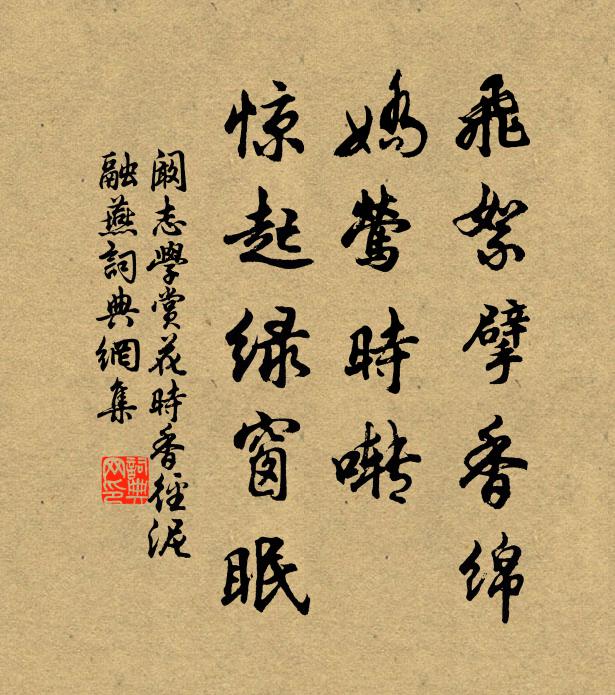 飛絮擘香綿
嬌鶯時囀
惊起绿窗眠
阚志學賞花時香徑泥
融燕詞典網集
詞典
网印